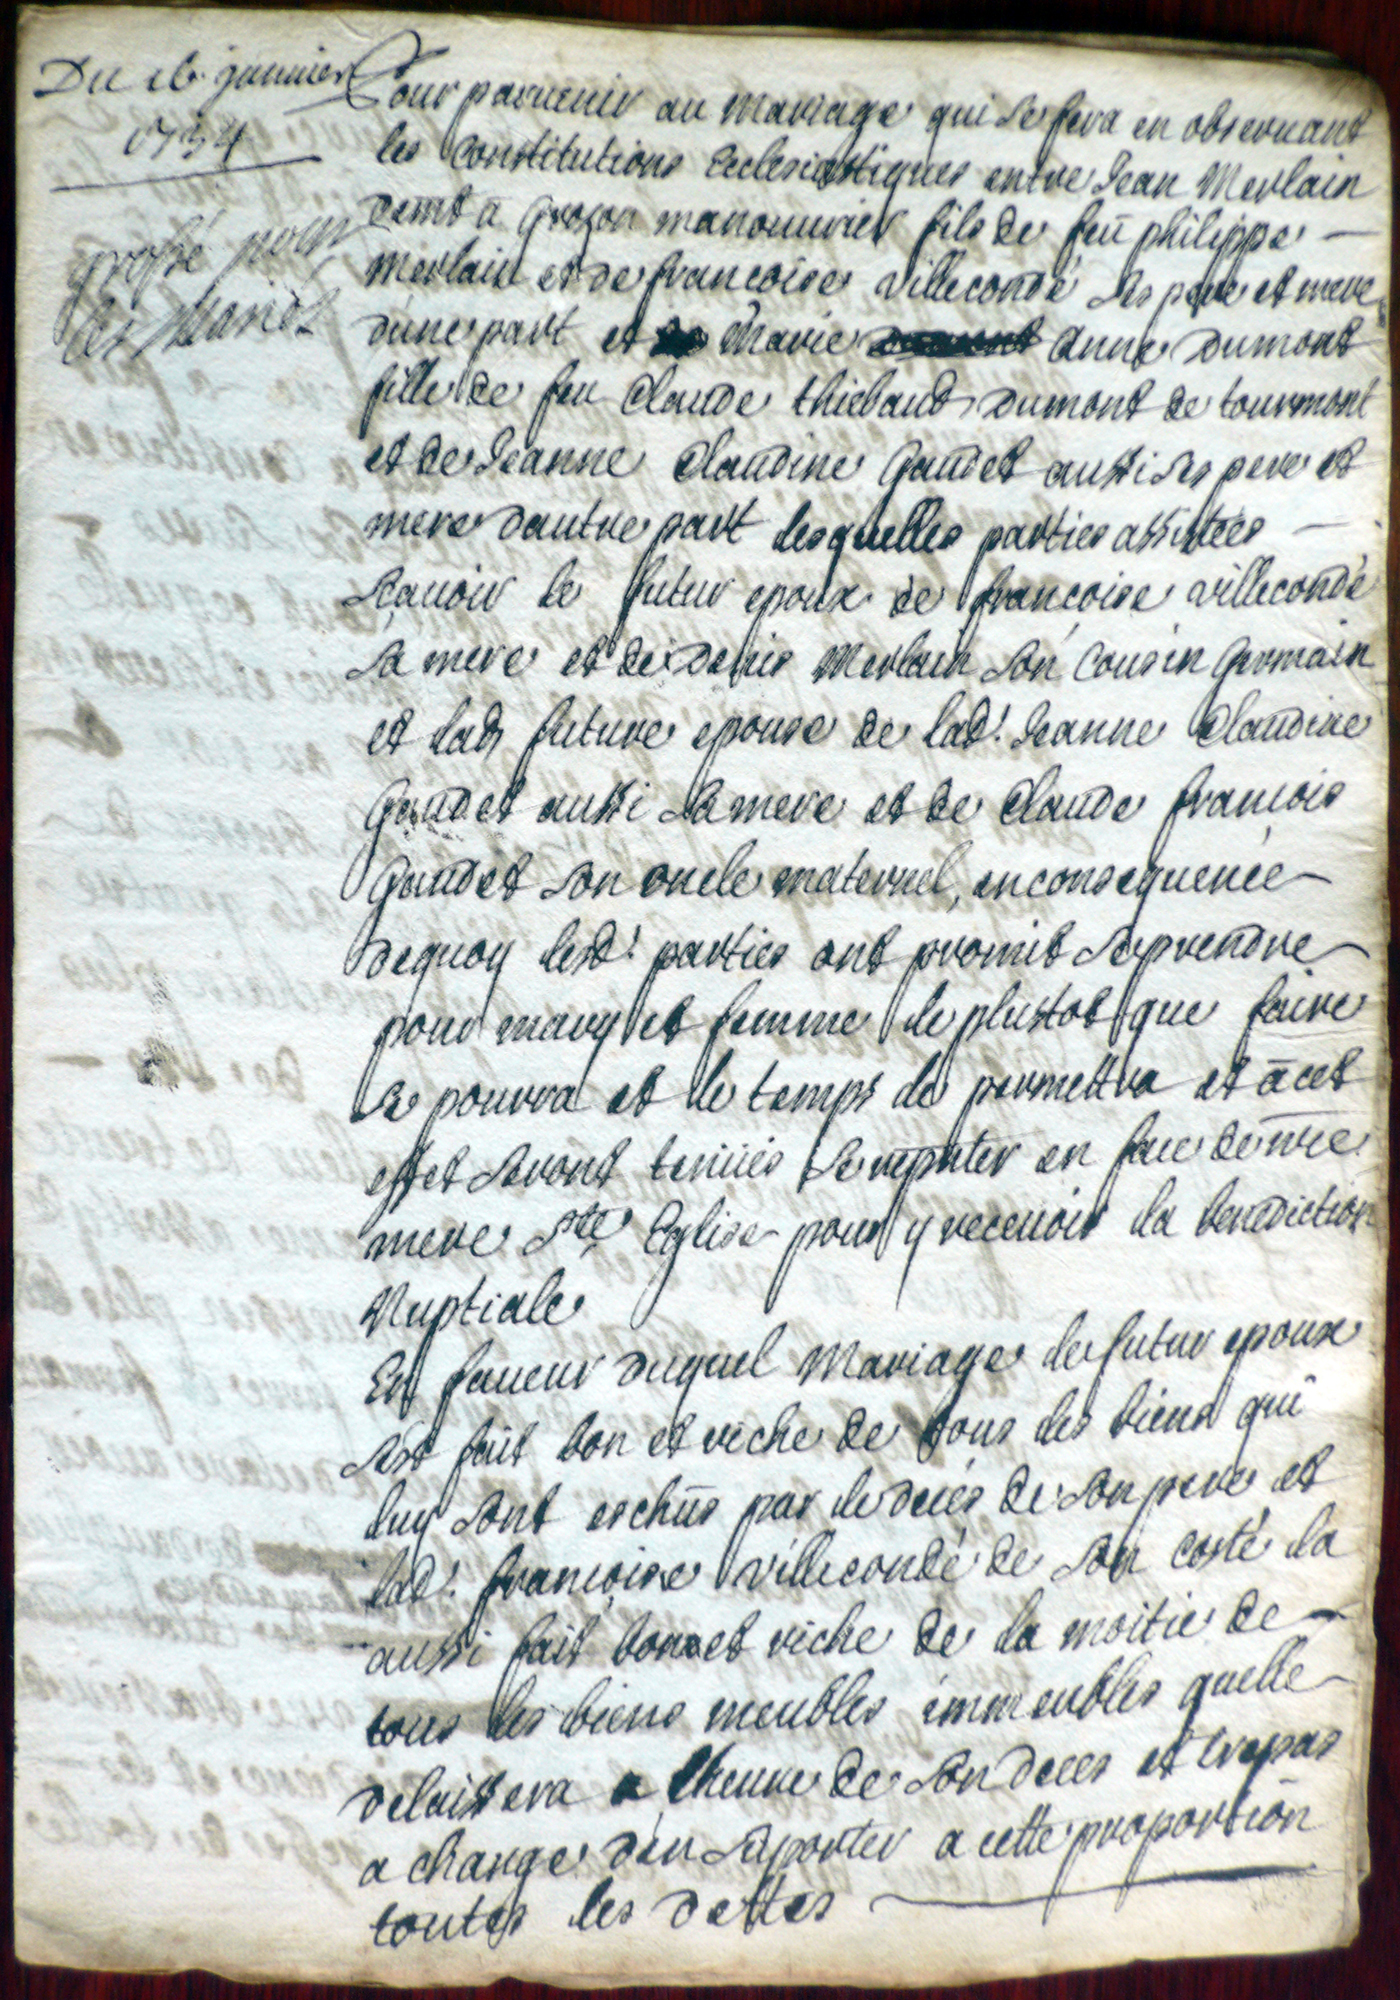 Du 16 janvier
1734
grossé pour
les mariés
Pour parvenir au mariage qui se fera en observant
les Constitutions Ecclesiastiques entre Jean Merlain
demt a grozon manouvrier fils de feü philippe —
Merlain et de francoise villecondé ses pere et mere
dune part et Marie Anne Dumont
fille de feu Claude thiebaud Dumont de tourmont
et de Jeanne Claudine Gaudet aussi ses pere et
mere dautre part lesquelles parties assistées —
scavoir le futur epoux de francoise villecondé
sa mere et de denis Merlain son Cousin Germain
et lad. future epouse de lad.t Jeanne Claudine
Gaudet aussi sa mere et de Claude francois
Gaudet son oncle maternel, enconsequence
dequoy lesd.t parties ont promit se prendre
pour mary et femme le plustot que faire
se pourra et le temps le permettra et a cet
effet seront tenües se reputer en face de nre
mere Ste Eglise pour y recevoir la benediction
Nuptiale
En faveur duquel Mariage le futur epoux
sest fait bon et riche de tous les biens qui
luy sont eschus par le deces de son pere et
lad.t francoise villecondé de son costé la
aussi fait bon et riche de la moitie de
tous les biens meubles immeubles quelle
delaissera a lheure de son deces et trepas
a charge den suporter a cette proportion
toutes les dettes —